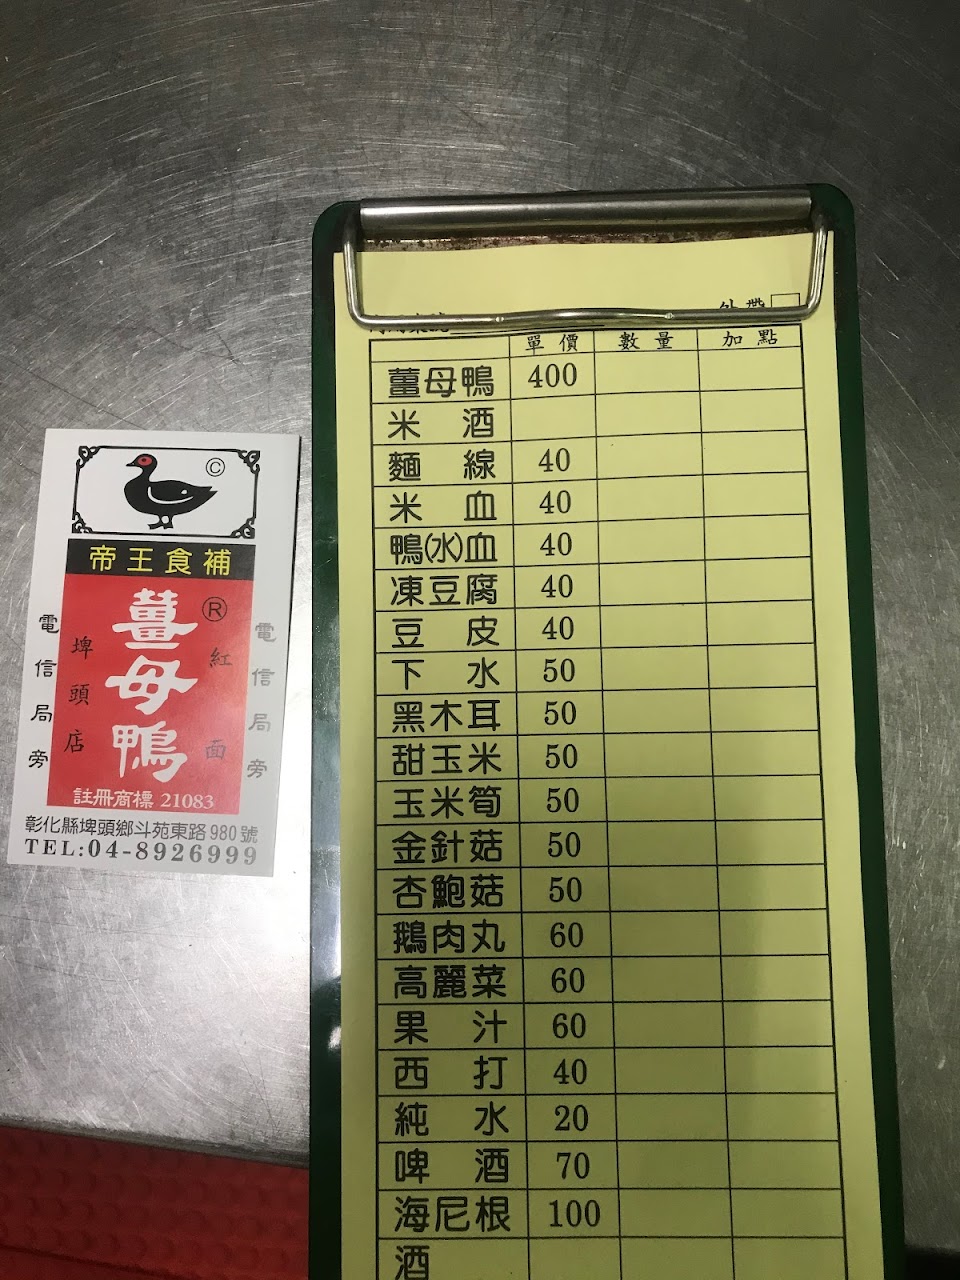 ©
帝王食補
薑母鴨 ®
紅面
埤頭店
電信局旁
電信局旁
註冊商標 21083
彰化縣埤頭鄉斗苑東路980號
TEL:04-8926999
外帶
單價 數量 加點
薑母鴨 400
米酒
麵線 40
米血 40
鴨(水)血 40
凍豆腐 40
豆皮 40
下水 50
黑木耳 50
甜玉米 50
玉米筍 50
金針菇 50
杏鮑菇 50
鵝肉丸 60
高麗菜 60
果汁 60
西打 40
純水 20
啤酒 70
海尼根 100
酒